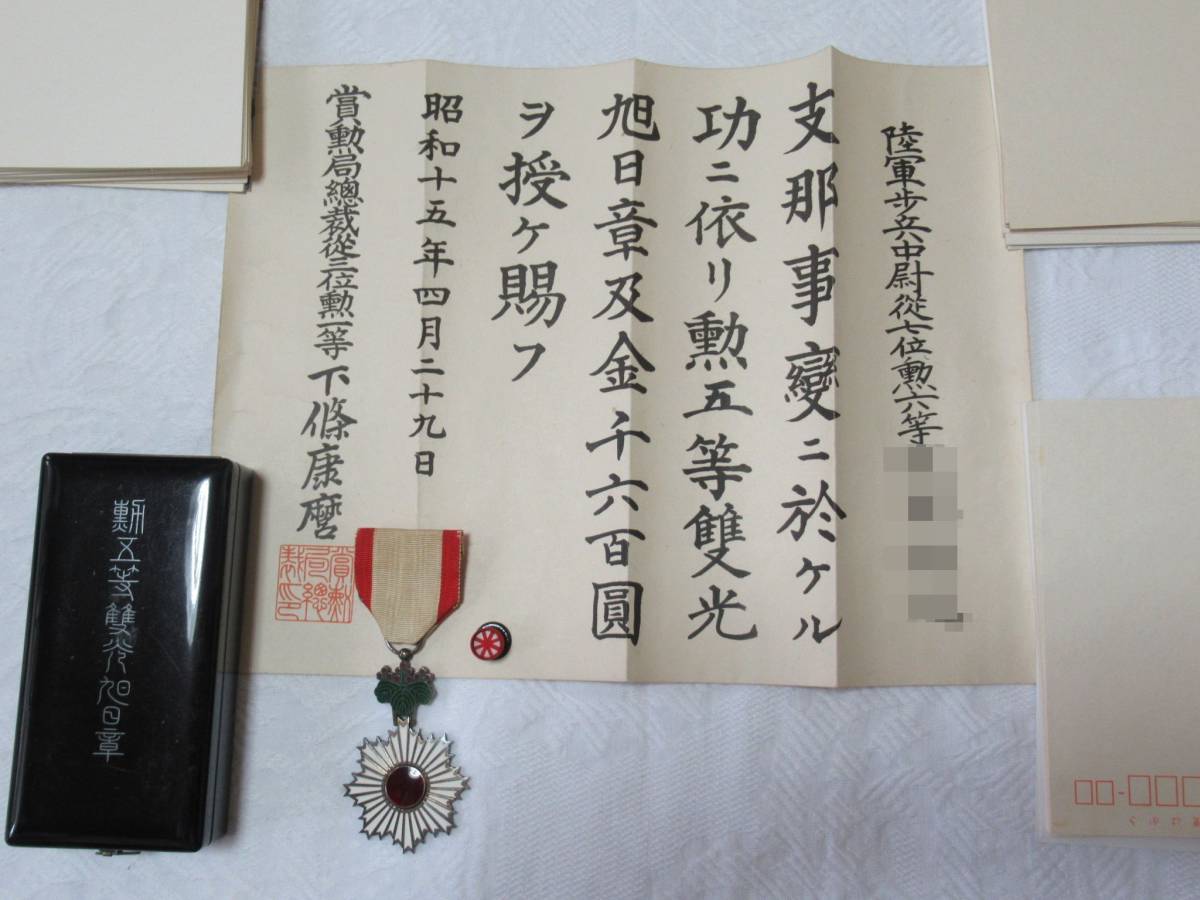 陸軍步兵中尉從七位勲六等
支那事變ニ於ケル
功ニ依リ勲五等雙光
旭日章及金千六百圓
ヲ授ケ賜フ
昭和十五年四月二十九日
賞勲局總裁從三位勲一等下條康麿
賞勲局總裁印
勲五等雙光旭日章